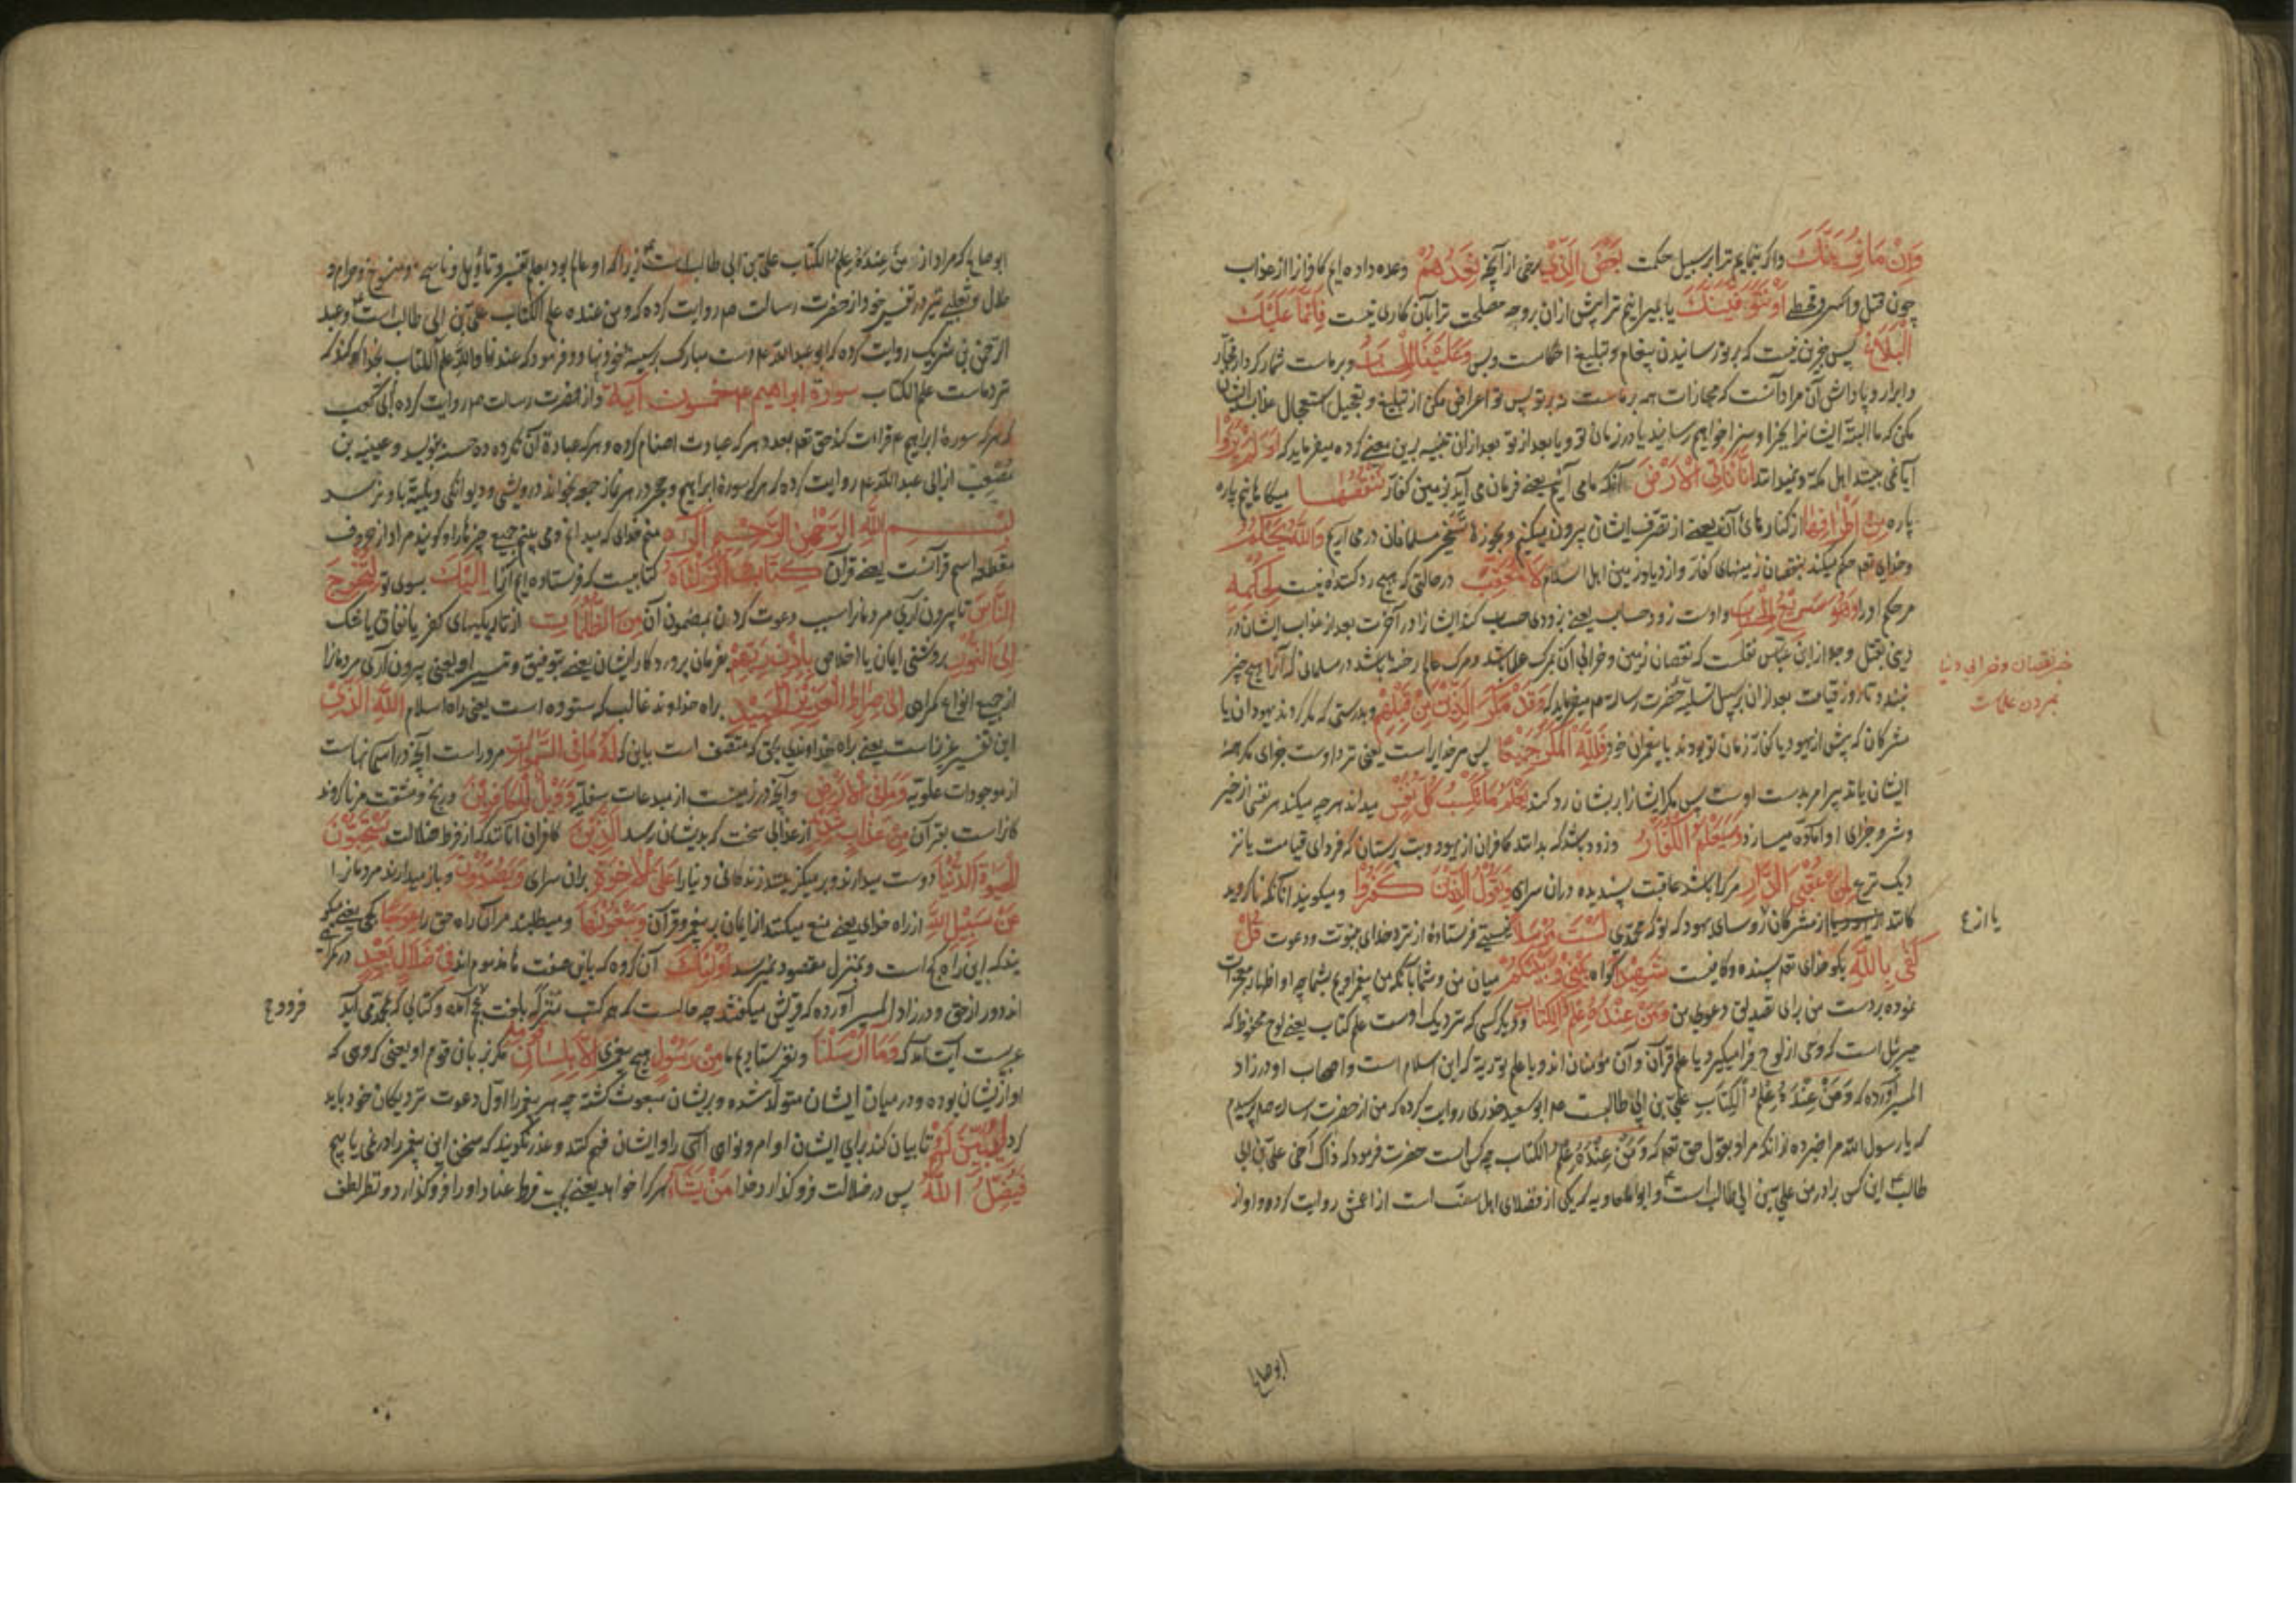 وَإِنْ مَا نُرِيَنَّكَ واگر بنمایم ترا بر سبیل حکمت بَعْضَ الَّذِي برخی از آنچه نَعِدُهُمْ وعده داده ایم کافرانرا از عذاب
چون قتل واسر وقحط أَوْ نَتَوَفَّيَنَّكَ یا بمیرانیم ترا پیش ازان بروجه مصلحت ترا بآن کاری نیست فَإِنَّمَا عَلَيْكَ
الْبَلَاغُ پس جزین نیست که بر تو رسانیدن پیغام وتبلیغ احکامست وبس وَعَلَيْنَا الْحِسَابُ وبر ماست شمار کردار فجار
وابرار وپاداش آن مراد آنست که مجازات همه بر ماست نه بر تو پس تو اعراض مکن از تبلیغ وتعجیل استعجال عذاب ایشان
مکن که ما البته ایشانرا بجزا وسزا خواهیم رسانید یا در زمان تو ویا بعد از تو بعد ازان تنبیه برین معنی کرده میفرماید که أَوَلَمْ يَرَوْا
آیا نمی بینند اهل مکه ونمیدانند أَنَّا نَأْتِي الْأَرْضَ آنکه ما می آئیم یعنی فرمان می آید بزمین کفار نَنْقُصُهَا میکاهانیم پاره
پاره مِنْ أَطْرَافِهَا از کنارهای آن یعنی از تصرف ایشان بیرون میکنیم وبحوزه تسخیر مسلمانان در می آریم وَاللَّهُ يَحْكُمُ
وخدای تعم حکم میکند بنقصان زمینهای کفار وازدیاد زمین اهل اسلام لَا مُعَقِّبَ در حالتی که هیچ رد کننده نیست لِحُكْمِهِ
مر حکم او را وَهُوَ سَرِيعُ الْحِسَابِ واوست زود حساب یعنی بزودی حساب کند ایشانرا در آخرت بعد از عذاب ایشان در
دینی بقتل وجلا از ابن عباس نقلست که نقصان زمین وخرابی آن بمرگ علما باشد ومرگ عالم رخنه باشد در مسلمانی که آنرا هیچ چیز
نبندد تا روز قیامت بعد ازان بر سبیل تسلیه حضرت رسالة صم میفرماید که وَقَدْ مَكَرَ الَّذِينَ مِنْ قَبْلِهِمْ وبدرستی که مکر کردند یهودان یا
مشرکان که پیش از یهود یا کفار زمان تو بودند با پیغمبران خود فَلِلَّهِ الْمَكْرُ جَمِيعًا پس مر خدایراست یعنی نزد اوست جزای مکر همه
ایشان یا تدبیر امر بدست اوست پس مکر ایشانرا بریشان رد کند يَعْلَمُ مَا تَكْسِبُ كُلُّ نَفْسٍ میداند هر چه میکند هر نفسی از خیر
وشر وجزای او آماده میسازد وَسَيَعْلَمُ الْكُفَّارُ وزود باشد که بدانند کافران از یهود وبت پرستان که فردای قیامت یا نز
دیک نزع لِمَنْ عُقْبَى الدَّارِ مر کرا باشد عاقبت پسندیده دران سرای وَيَقُولُ الَّذِينَ كَفَرُوا ومیگویند آنانکه نا گروید
کانند از مشرکان رؤسای یهود که تو که محمدی لَسْتَ مُرْسَلًا نیستی فرستاده از نزد خدای بنبوت ودعوت قُلْ
كَفَى بِاللَّهِ بگو خدای تعم پسنده وکافیست شَهِيدًا گواه بَيْنِي وَبَيْنَكُمْ میان من وشما بآنکه من پیغمبر اویم بشما چه او اظهار معجزات
نموده بر دست من برای تصدیق دعوی من وَمَنْ عِنْدَهُ عِلْمُ الْكِتَابِ ودیگر کسی که نزدیک اوست علم کتاب یعنی لوح محفوظ که
جبرئیل است که وحی از لوح فرا میگیرد یا علم قرآن وآن مؤمنان اند ویا علم توریة که ابن سلام است واصحاب او در زاد
المسیر آورده که وَمَنْ عِنْدَهُ عِلْمُ الْكِتَابِ علی بن ابی طالبست عم ابو سعید خدری روایت کرده که من از حضرت رساله صم پرسیدم
که یا رسول الله مرا خبر ده از انکه مراد بقول حق تعم که وَمَنْ عِنْدَهُ عِلْمُ الكتاب چه کس است حضرت فرمود که ذاک اخی علی بن ابی
طالب این کس برادر من علی بن ابی طالب است وابو معاویه که یکی از فضلای اهل سنت است از اعمش روایت کرده واو از
خبر نقصان وخرابی دنیا
بمردن علماست
یا از ع
ابو صالح
ابو صالح که مراد از مَنْ عِنْدَهُ عِلْمُ الکتاب علی بن ابی طالب است زیرا که او عالم بود بعلم تفسیر وتأویل وناسخ ومنسوخ وحرام و
حلال وثعلبی نیز در تفسیر خود از حضرت رسالت صم روایت کرده که ومن عنده علم الکتاب علی بن ابی طالب است وعبد
الرحمن بن شریک روایت کرده که ابو عبد الله عم دست مبارک بسینه خود نهاد وفرمود که عندنا والله علم الکتاب بخدا سوگند که
نزد ماست علم الکتاب سورة ابراهیم عم خمسون آیة واز حضرت رسالت صم روایت کرده أبی کعب
که هر که سورۀ ابراهیم عم قراءت کند حق تعم بعدد هر که عبادت اصنام کرده وهر که عبادة آن نکرده ده حسنه بنویسد وعیینه بن
مصعب از ابی عبد الله عم روایت کرده که هر که سورۀ ابراهیم وحجر در هر نماز جمعه بخواند درویشی ودیوانگی وبلیه باو نرسد
بِسْمِ اللَّهِ الرَّحْمَنِ الرَّحِيمِ الر منم خدای که میدانم ومی بینم جمیع چیزها را وگویند مراد از حروف
مقطعه اسم قرآنست یعنی قرآن كِتَابٌ أَنْزَلْنَاهُ کتابیست که فرستاده ایم آنرا إِلَيْكَ بسوی تو لِتُخْرِجَ
النَّاسَ تا بیرون آری مردمانرا بسبب دعوت کردن بمضمون آن مِنَ الظُّلُمَاتِ از تاریکیهای کفر یا نفاق یا شک
إِلَى النُّورِ بروشنی ایمان یا اخلاص بِإِذْنِ رَبِّهِمْ بفرمان پروردگار ایشان یعنی بتوفیق وتیسیر او یعنی بیرون آری مردمانرا
از جمیع انواع گمراهی إِلَى صِرَاطِ الْعَزِيزِ الْحَمِيدِ براه خداوند غالب که ستوده است یعنی راه اسلام اللَّهِ الَّذِي
این تفسیر عزیز است یعنی براه خداوندی بحق که متصف است باین که لَهُ مَا فِي السَّمَوَاتِ مر وراست آنچه در آسمانهاست
از موجودات علویه وَمَا فِي الْأَرْضِ وآنچه در زمینست از مبدعات سفلیه وَوَيْلٌ لِلْكَافِرِينَ ورنج ومشقت مر نا گروند
کانراست بقرآن مِنْ عَذَابٍ شَدِيدٍ از عذابی سخت که بدیشان رسد الَّذِينَ کافران آنانند که از فرط ضلالت يَسْتَحِبُّونَ
الْحَيَوةَ الدُّنْيَا دوست میدارند وبر میگزینند زندگانی دنیا را عَلَى الْآخِرَةِ بران سرای وَيَصُدُّونَ وباز میدارند مردمانرا
عَنْ سَبِيلِ اللَّهِ از راه خدای یعنی منع میکنند از ایمان بپیغمبر وقرآن وَيَبْغُونَهَا ومیطلبند مر آن راه حق را عِوَجًا کجی یعنی میگو
یند که این راه کج است وبمنزل مقصود نمیرسد أُولَئِكَ آن گروه که باین صفت مذمومه اند فِي ضَلَالٍ بَعِيدٍ در گمراهی
اند دور از حق ودر زاد المسیر آورده که قریش میگفتند چه حالست که همه کتب منزله بلغت عجم آمده وکتابی که بمحمد می آید
عربیست آیت آمد که وَمَا أَرْسَلْنَا ونفرستادیم ما مِنْ رَسُولٍ هیچ پیغمبری إِلَّا بِلِسَانِ قَوْمِهِ مگر بزبان قوم او یعنی گروهی که
او ازیشان بوده ودر میان ایشان متولد شده وبریشان مبعوث گشته چه هر پیغمبر را اول دعوت نزدیکان خود باید
کرد لِيُبَيِّنَ لَهُمْ تا بیان کند برای ایشان اوامر ونواهی الهی را وایشان فهم کنند وعذر نگویند که سخن این پیغمبر را در نمی یابیم
فَيُضِلُّ اللَّهُ پس در ضلالت فرو گذارد خدا مَنْ يَشَاءُ هر کرا خواهد یعنی بجهت فرط عناد او را فرو گذارد ونظر لطف
فرود ع